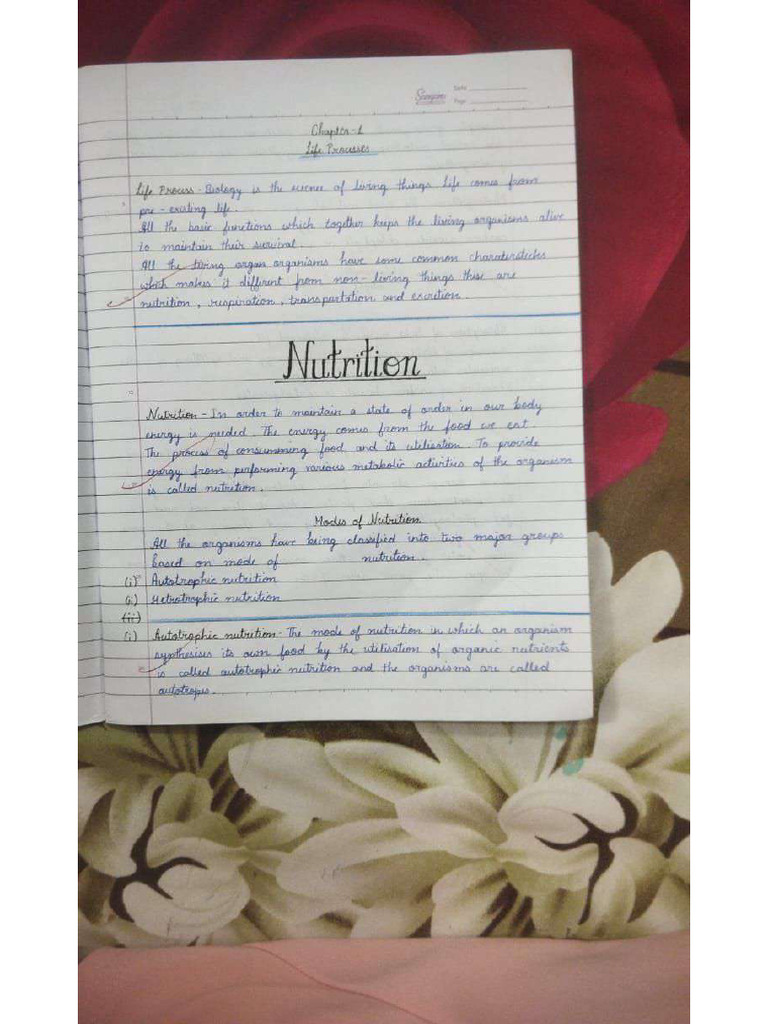 Date
Page
Chapter-1
Life Processes
Life Process - Biology is the science of living things life comes from
pre-existing life.
All the basic functions which together keeps the living organisms alive
to maintain their survival.
All the living organ organisms have some common charaterstecks
which makes it different from non-living things these are
nutrition, respiration, transpartation and excretion.
Nutrition
Nutrition - In order to maintain a state of order in our body
energy is needed. The energy comes from the food we eat
The process of consumming food and its utilisation. To provide
energy from performing various metabolic activities of the organism
is called nutrition.
Modes of Nutrition
All the organisms have being classified into two major groups
based on mode of nutrition.
(i) Autotrophic nutrition
(ii) Hetrotrophic nutrition
(iii)
(i) Autotrophic nutrition - The mode of nutrition in which an organism
synthesises its own food by the utilisation of organic nutrients
is called autotrophic nutrition and the organisms are called
autotropes.